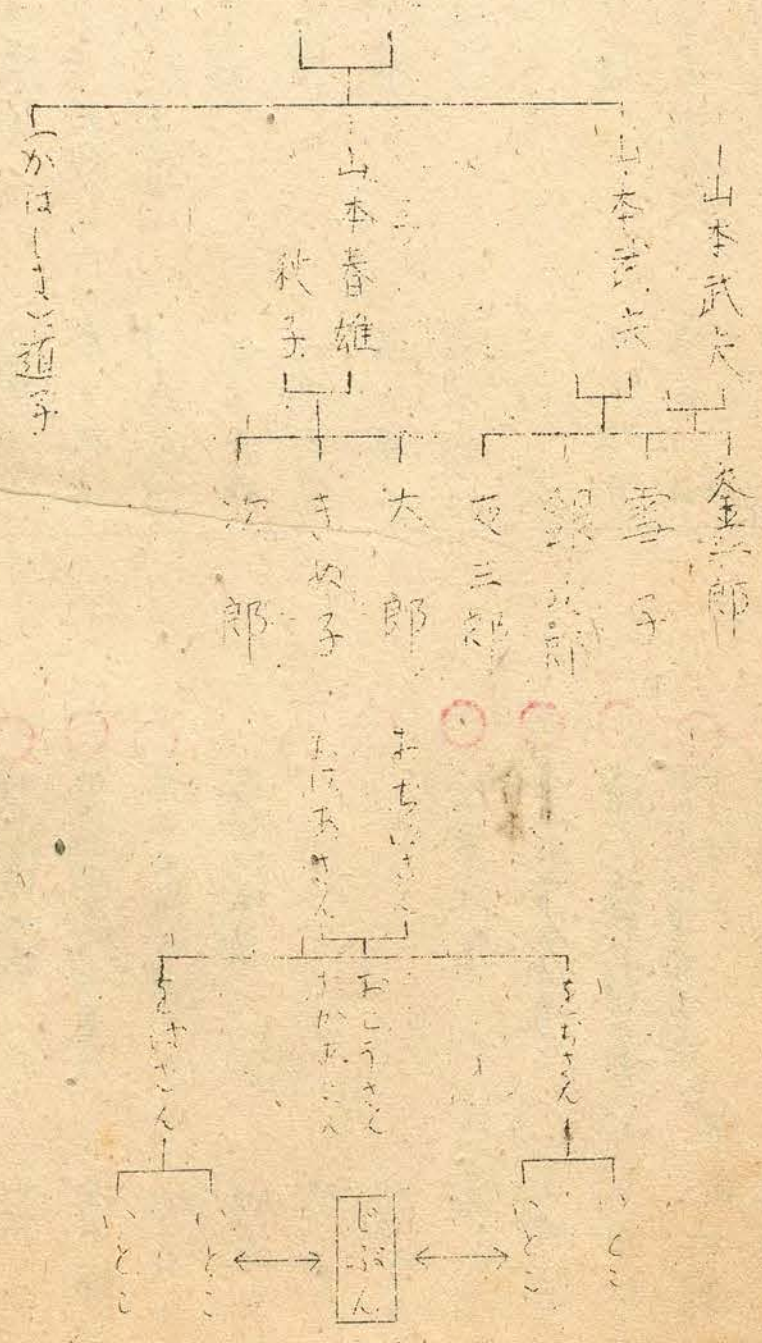 山本武夫
山本武夫
金太郎
雪子
銀次郎
友三郎
山本春雄
秋子
太郎
きぬ子
次郎
かはしま道子
おぢいさん
おばあさん
をぢさん
おとうさん
おかあさん
をばさん
いとこ
いとこ
じぶん
いとこ
いとこ